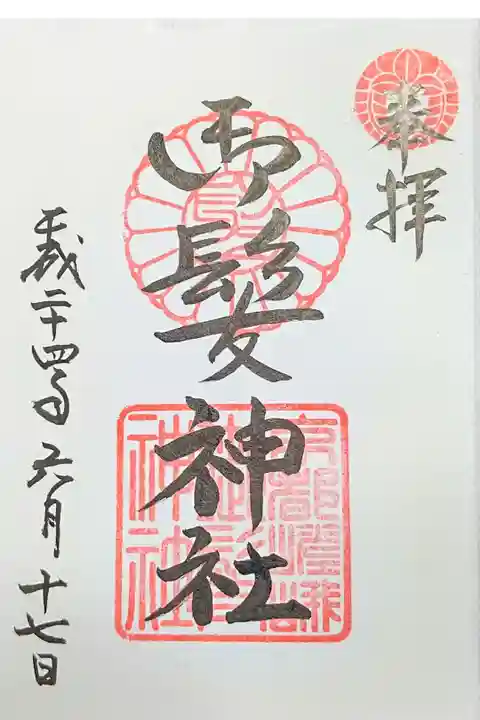 奉拝
御髪神社
平成二十四年六月十七日